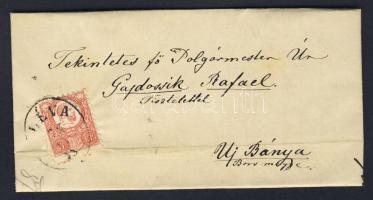 Tekintetes fő Polgármester Úr
Gajdossik Rafael
Tisztelettel
LÉVA
Uj Bánya
Bars megye